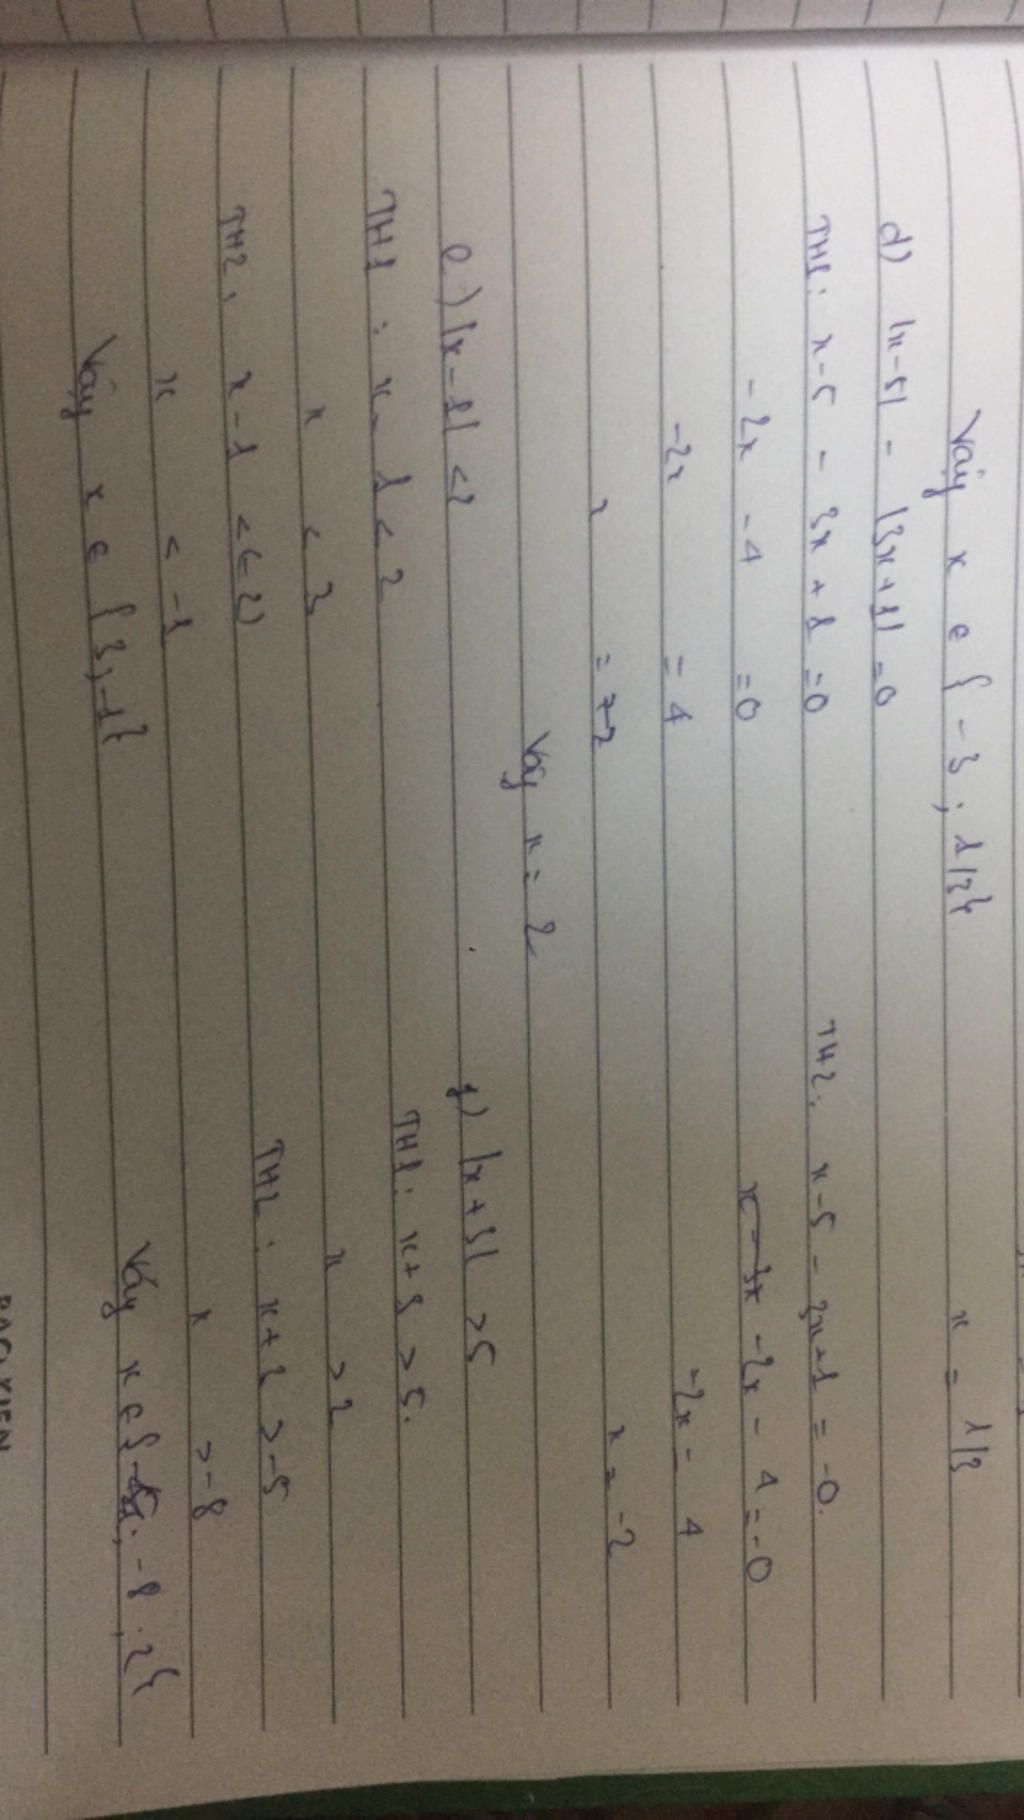 x = 1/3
Vậy x ∈ { -3 ; 1/3}
d) |x-5| - |3x+1| = 0
TH1: x-5 - 3x + 1 = 0
-2x - 4 = 0
-2x = 4
= -2
TH2: x-5 - 3x+1 = -0.
-2x - 4 = -0
-2x = 4
x = -2
Vậy x = 2
e) |x-1| < 2
TH1 : x - 1 < 2
x < 3
TH2: x - 1 < (-2)
x < -1
Vậy x ∈ { 3, -1}
f) |x+3| > 5
TH1: x+3 > 5.
x > 2
TH2: x+3 > -5
x > -8
Vậy x ∈ { -8 ; 2}